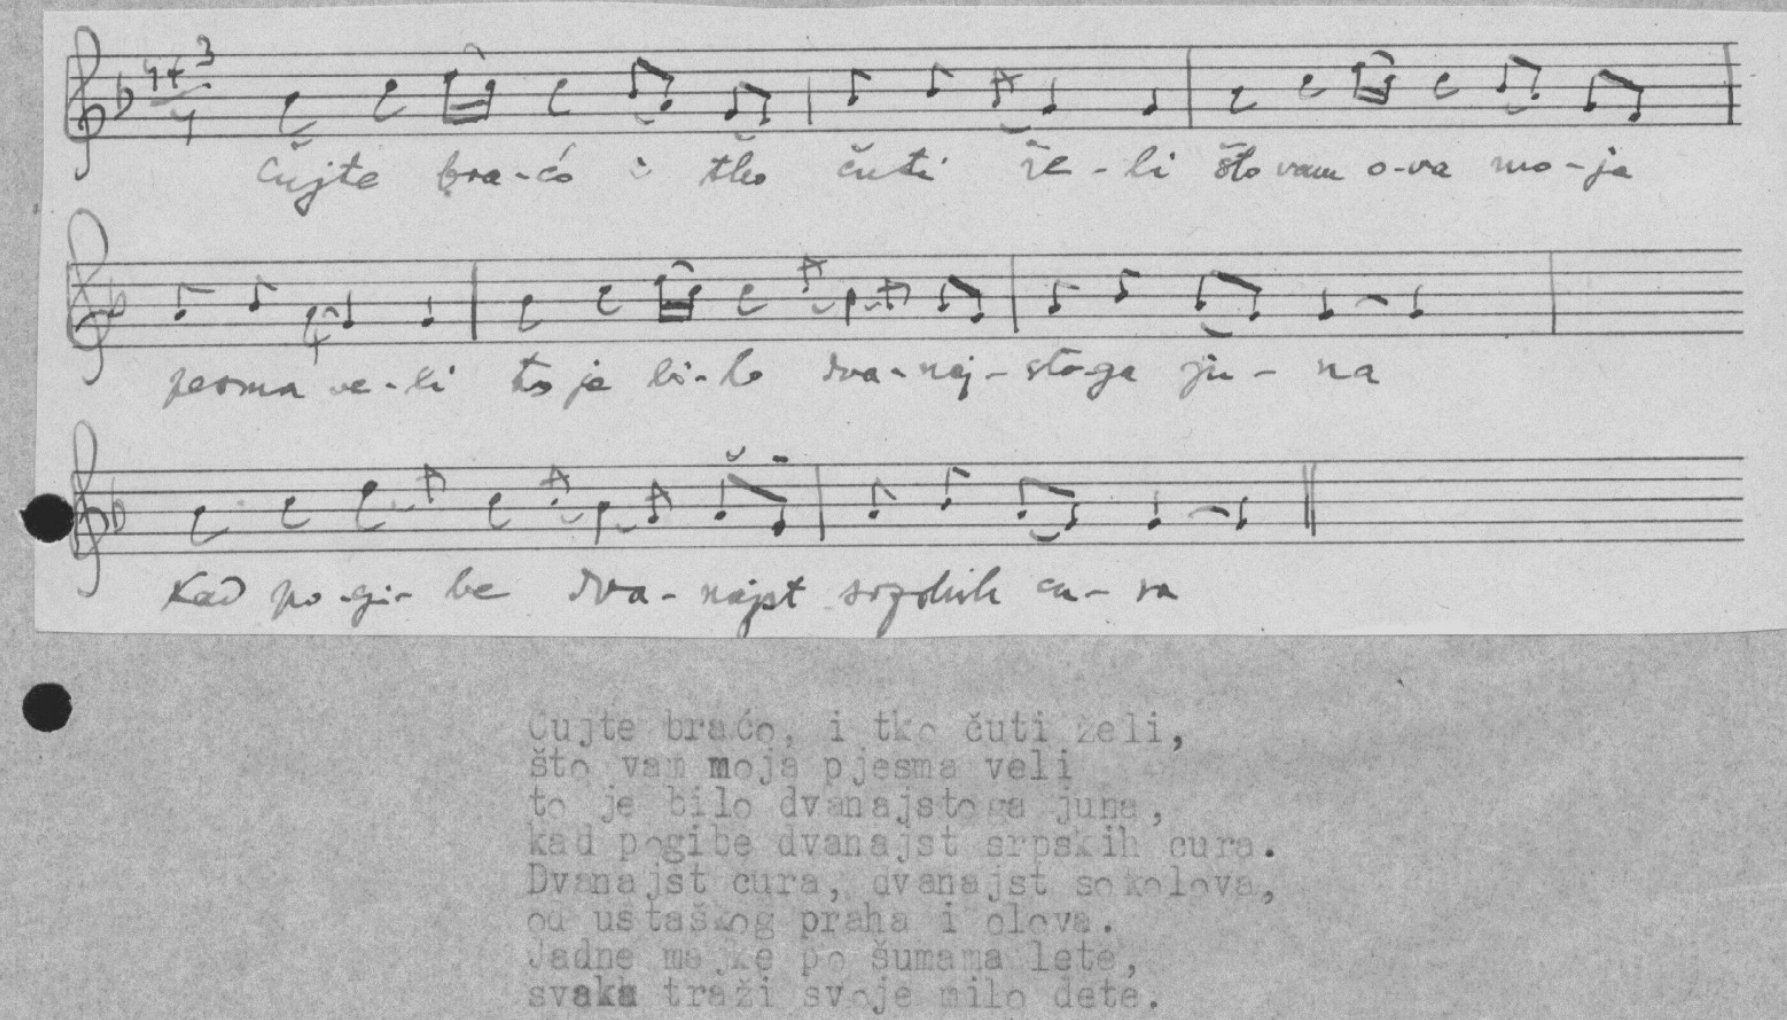 4+3
4
Čujte bra-ćo i tko čuti že-li što vam o-va mo-ja
pesma ve-li to je bi-lo dva-naj-sto-ga ju-na
Kad po-gi-be dva-najst srpskih cu-ra
Čujte braćo, i tko čuti želi,
što vam moja pjesma veli
to je bilo dvanajstoga juna,
kad pogibe dvanajst srpskih cura.
Dvanajst cura, dvanajst sokolova,
od ustaškog praha i olova.
Jadne majke po šumama lete,
svaka traži svoje milo dete.